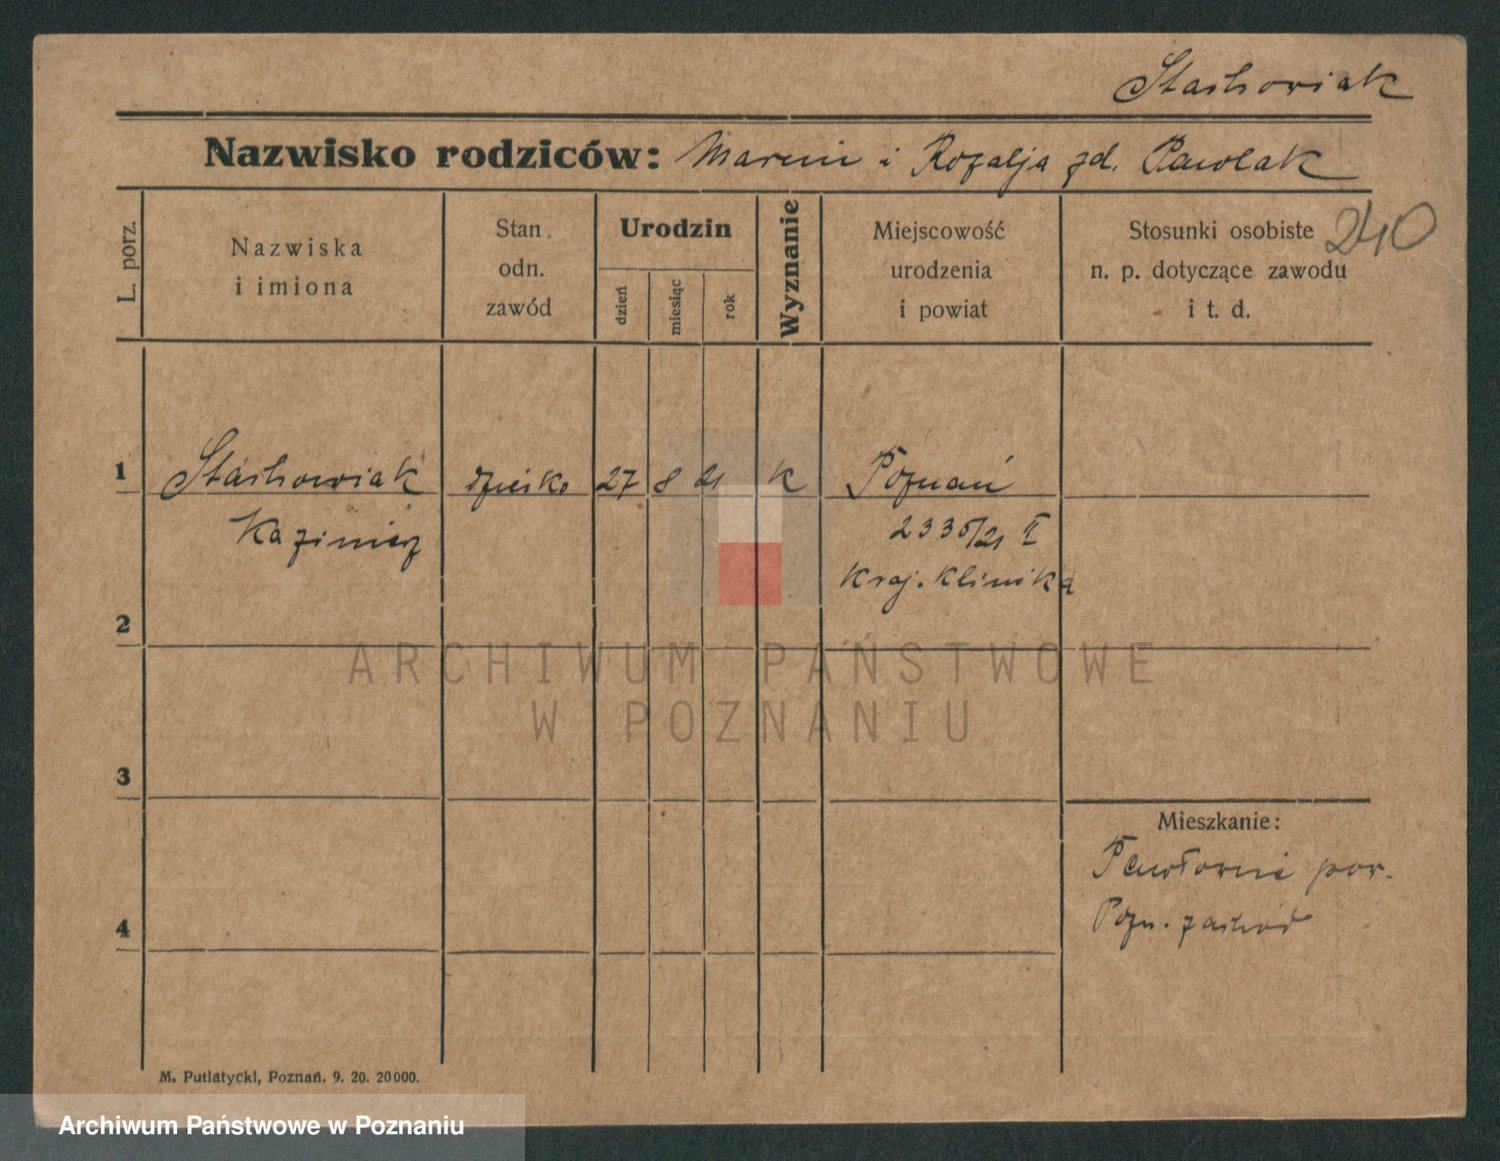 Stachowiak
Nazwisko rodziców: Marcin i Rozalja zd. Pawlak
240
L. porz.
Nazwiska
i imiona
Stan.
odn.
zawód
Urodzin
dzień
miesiąc
rok
Wyznanie
Miejscowość
urodzenia
i powiat
Stosunki osobiste
n. p. dotyczące zawodu
i t. d.
1 Stachowiak dziecko 27 8 21 K Poznań
Kazimierz 2335/21 II
Kraj. Klinika
2
ARCHIWUM PAŃSTWOWE
W POZNANIU
3
Mieszkanie:
Pawłowice pow.
4 Pozn. zachód
M. Putiatycki, Poznań. 9. 20. 20000.
Archiwum Państwowe w Poznaniu